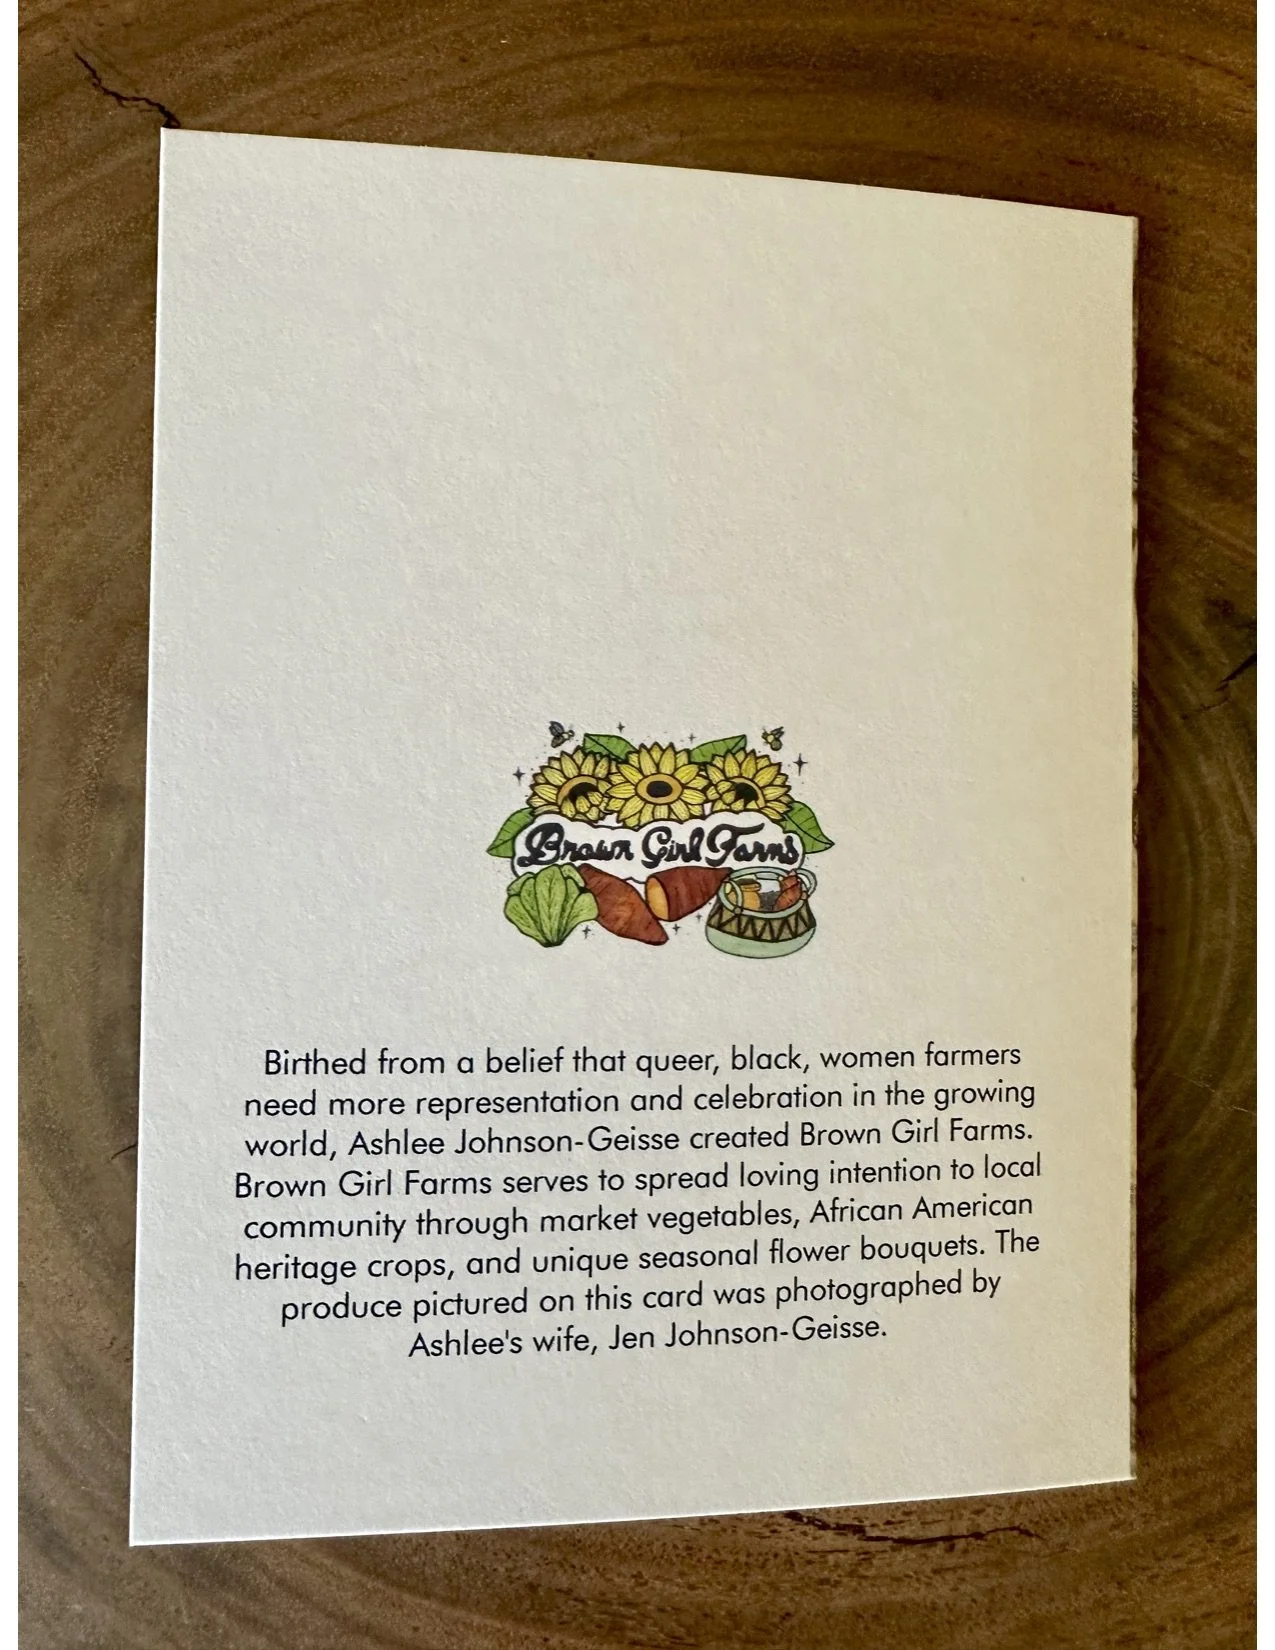 Brown Girl Farms
Birthed from a belief that queer, black, women farmers
need more representation and celebration in the growing
world, Ashlee Johnson-Geisse created Brown Girl Farms.
Brown Girl Farms serves to spread loving intention to local
community through market vegetables, African American
heritage crops, and unique seasonal flower bouquets. The
produce pictured on this card was photographed by
Ashlee's wife, Jen Johnson-Geisse.